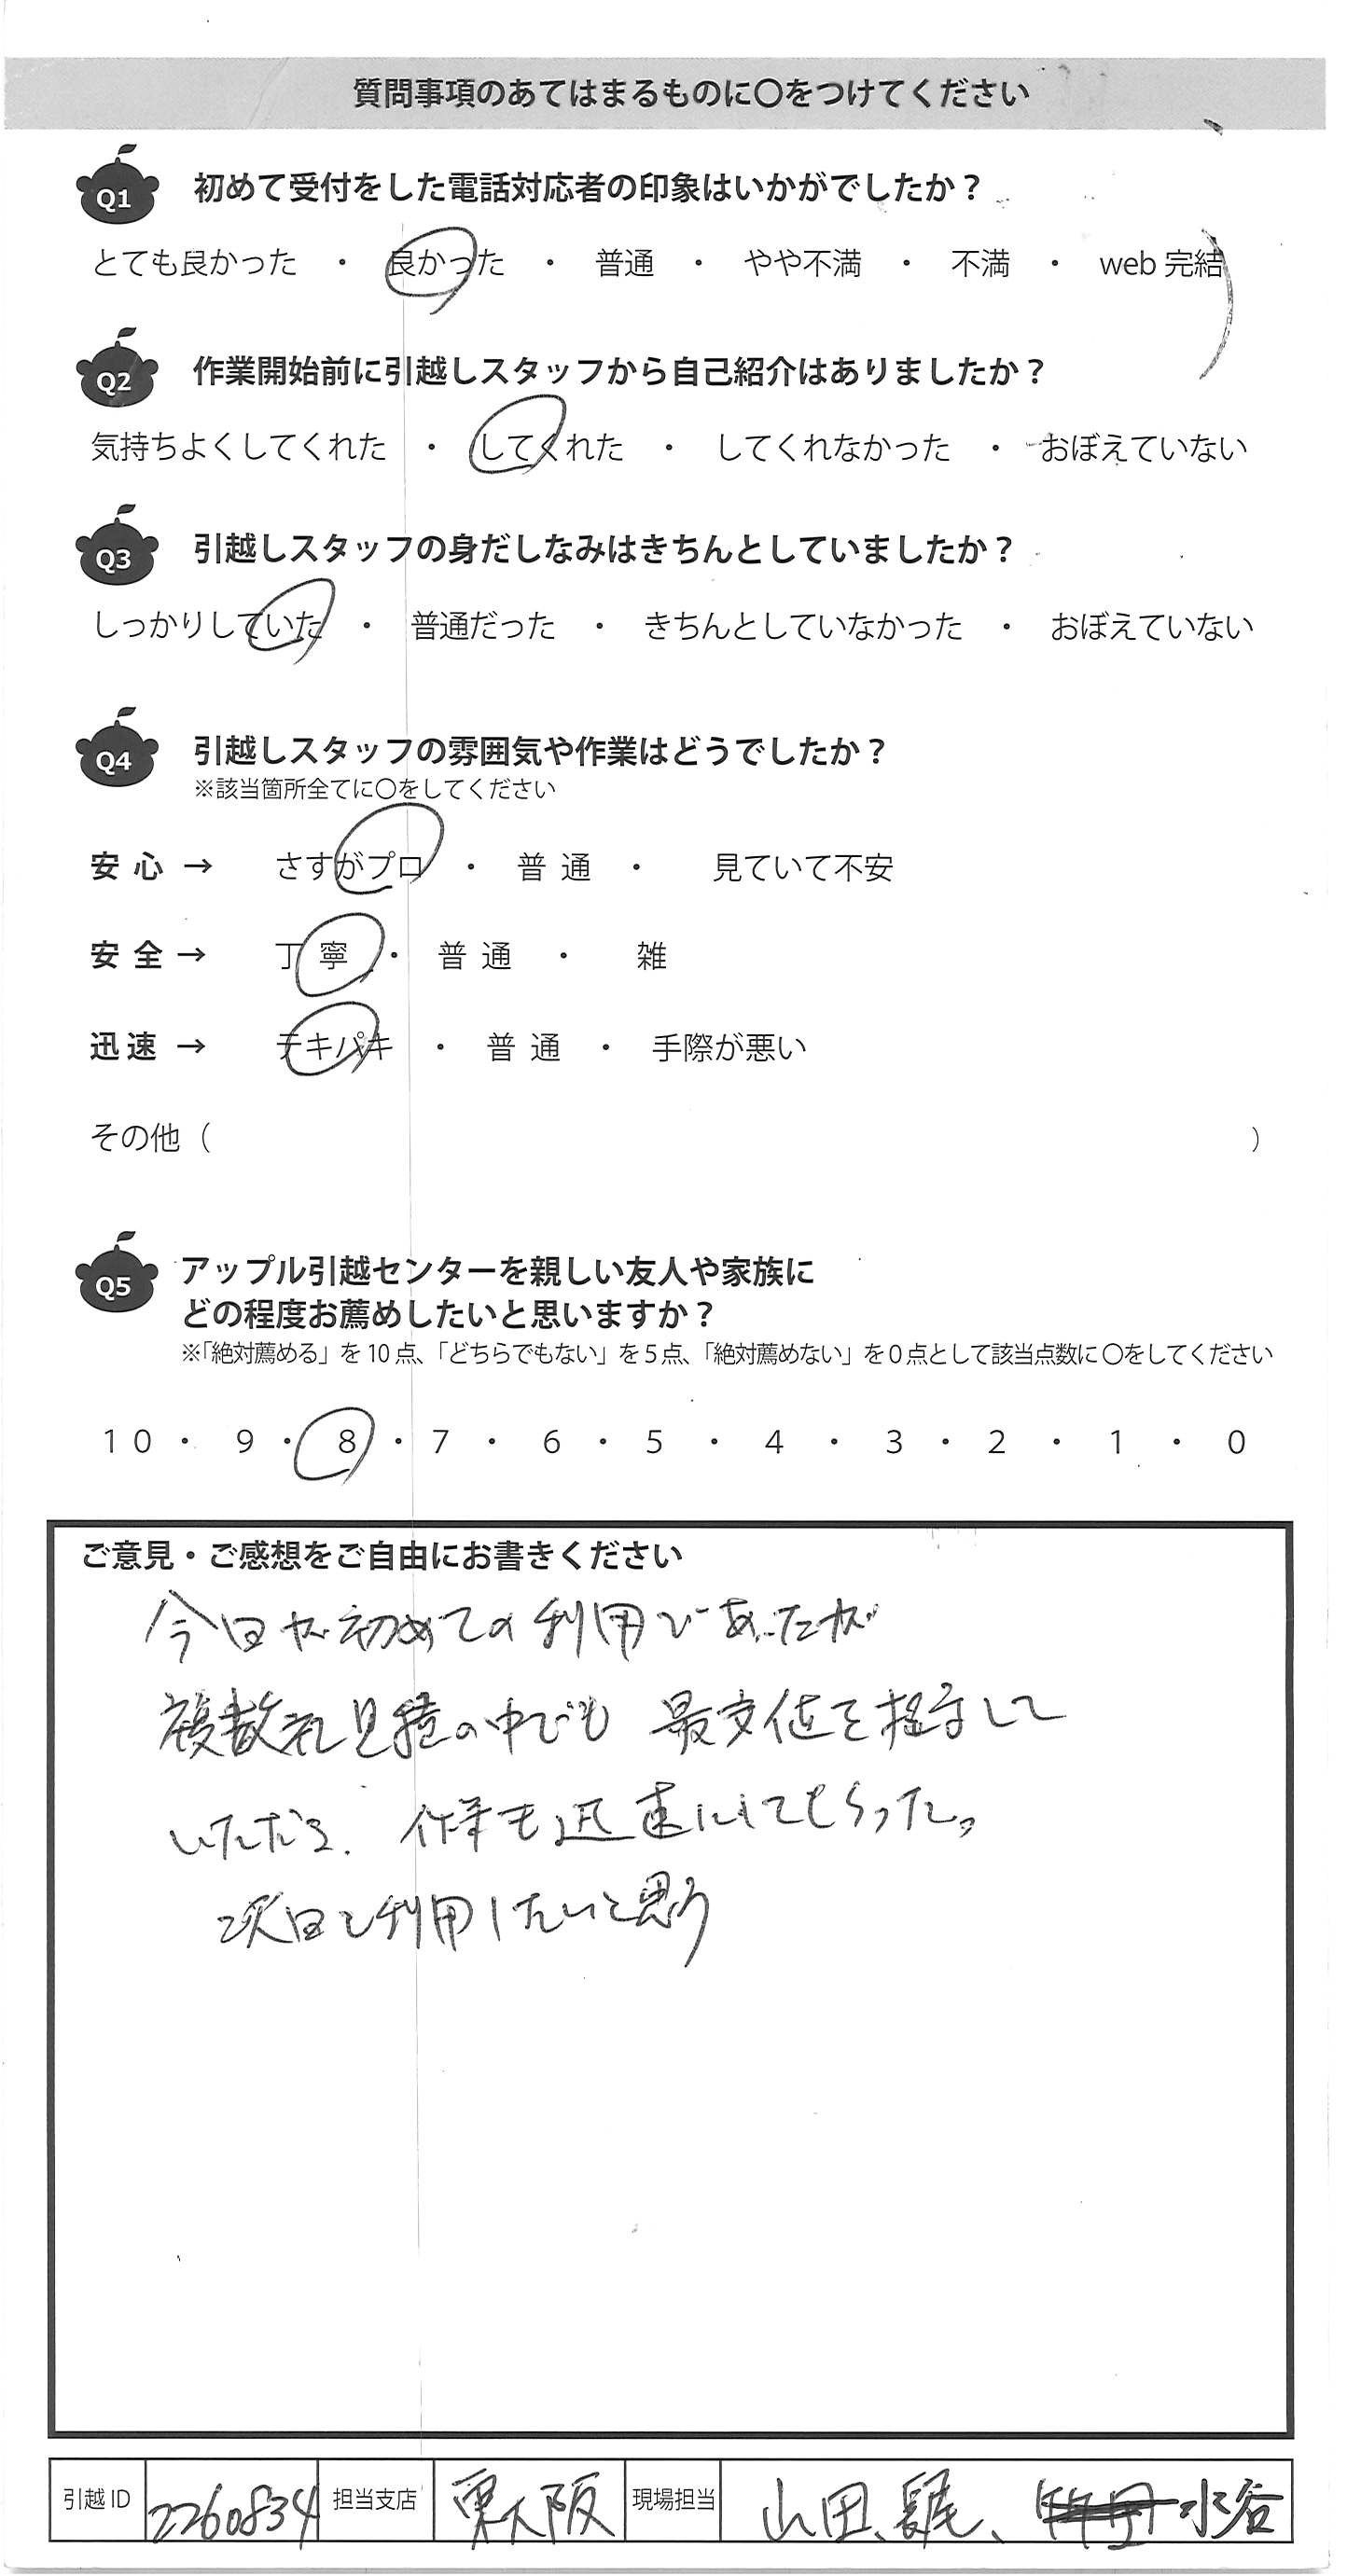 質問事項のあてはまるものに〇をつけてください
Q1 初めて受付をした電話対応者の印象はいかがでしたか？
とても良かった ・ 良かった ・ 普通 ・ やや不満 ・ 不満 ・ web 完結
Q2 作業開始前に引越しスタッフから自己紹介はありましたか？
気持ちよくしてくれた ・ してくれた ・ してくれなかった ・ おぼえていない
Q3 引越しスタッフの身だしなみはきちんとしていましたか？
しっかりしていた ・ 普通だった ・ きちんとしていなかった ・ おぼえていない
Q4 引越しスタッフの雰囲気や作業はどうでしたか？
※該当箇所全てに〇をしてください
安心 → さすがプロ ・ 普通 ・ 見ていて不安
安全 → 丁寧 ・ 普通 ・ 雑
迅速 → テキパキ ・ 普通 ・ 手際が悪い
その他（ ）
Q5 アップル引越センターを親しい友人や家族に
どの程度お薦めしたいと思いますか？
※「絶対薦める」を 10 点、「どちらでもない」を 5 点、「絶対薦めない」を 0 点として該当点数に 〇をしてください
10 ・ 9 ・ 8 ・ 7 ・ 6 ・ 5 ・ 4 ・ 3 ・ 2 ・ 1 ・ 0
ご意見・ご感想をご自由にお書きください
今回が初めての利用であったが
複数社見積の中でも 最安値を提示して
いただき、作業も迅速にしてもらった。
次回も利用したいと思う
引越 ID 2260834 担当支店 東大阪 現場担当 山田、長尾、水谷